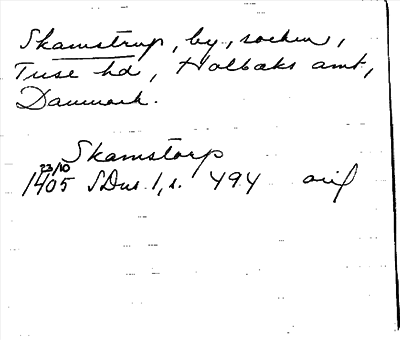 Skamstrup, by, socken,
Tuse hd, Holbæks amt,
Danmark.
Skamstorp
23/10
1405 SDns 1, s. 494 orig